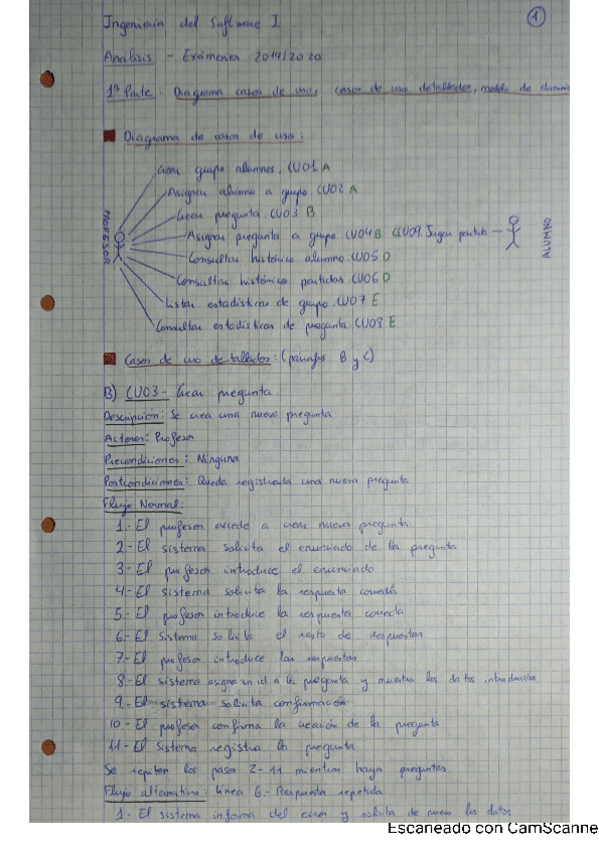 Ingeniería del Software I
1
Análisis - Exámenes 2019/2020
1ª Parte: Diagrama casos de uso, casos de uso detallados, modelo de dominio
Diagrama de casos de uso:
Crear grupo alumnos. CU01 A
Asignar alumno a grupo. CU02 A
Crear pregunta. CU03 B
Asignar pregunta a grupo. CU04 B CU09 Jugar partida
Consultar histórico alumno. CU05 D
Consultar histórico partidas. CU06 D
Listar estadísticas de grupo. CU07 E
Consultar estadísticas de pregunta. CU08 E
PROFESOR
ALUMNO
Casos de uso detallados: (párrafos B y C)
B) CU03 - Crear pregunta
Descripción: Se crea una nueva pregunta
Actores: Profesor
Precondiciones: Ninguna
Postcondiciones: Queda registrada una nueva pregunta
Flujo Normal:
1.- El profesor accede a crear nueva pregunta.
2.- El sistema solicita el enunciado de la pregunta
3.- El profesor introduce el enunciado
4.- El sistema solicita la respuesta correcta
5.- El profesor introduce la respuesta correcta
6.- El sistema solicita el resto de respuestas
7.- El profesor introduce las respuestas
8.- El sistema asigna un id a la pregunta y muestra los datos introducidos
9.- El sistema solicita confirmación
10.- El profesor confirma la creación de la pregunta
11.- El sistema registra la pregunta
Se repiten los pasos 2-11 mientras haya preguntas
Flujo alternativo: Línea 6.- Respuesta repetida
1.- El sistema informa del error y solicita de nuevo los datos
Escaneado con CamScanne